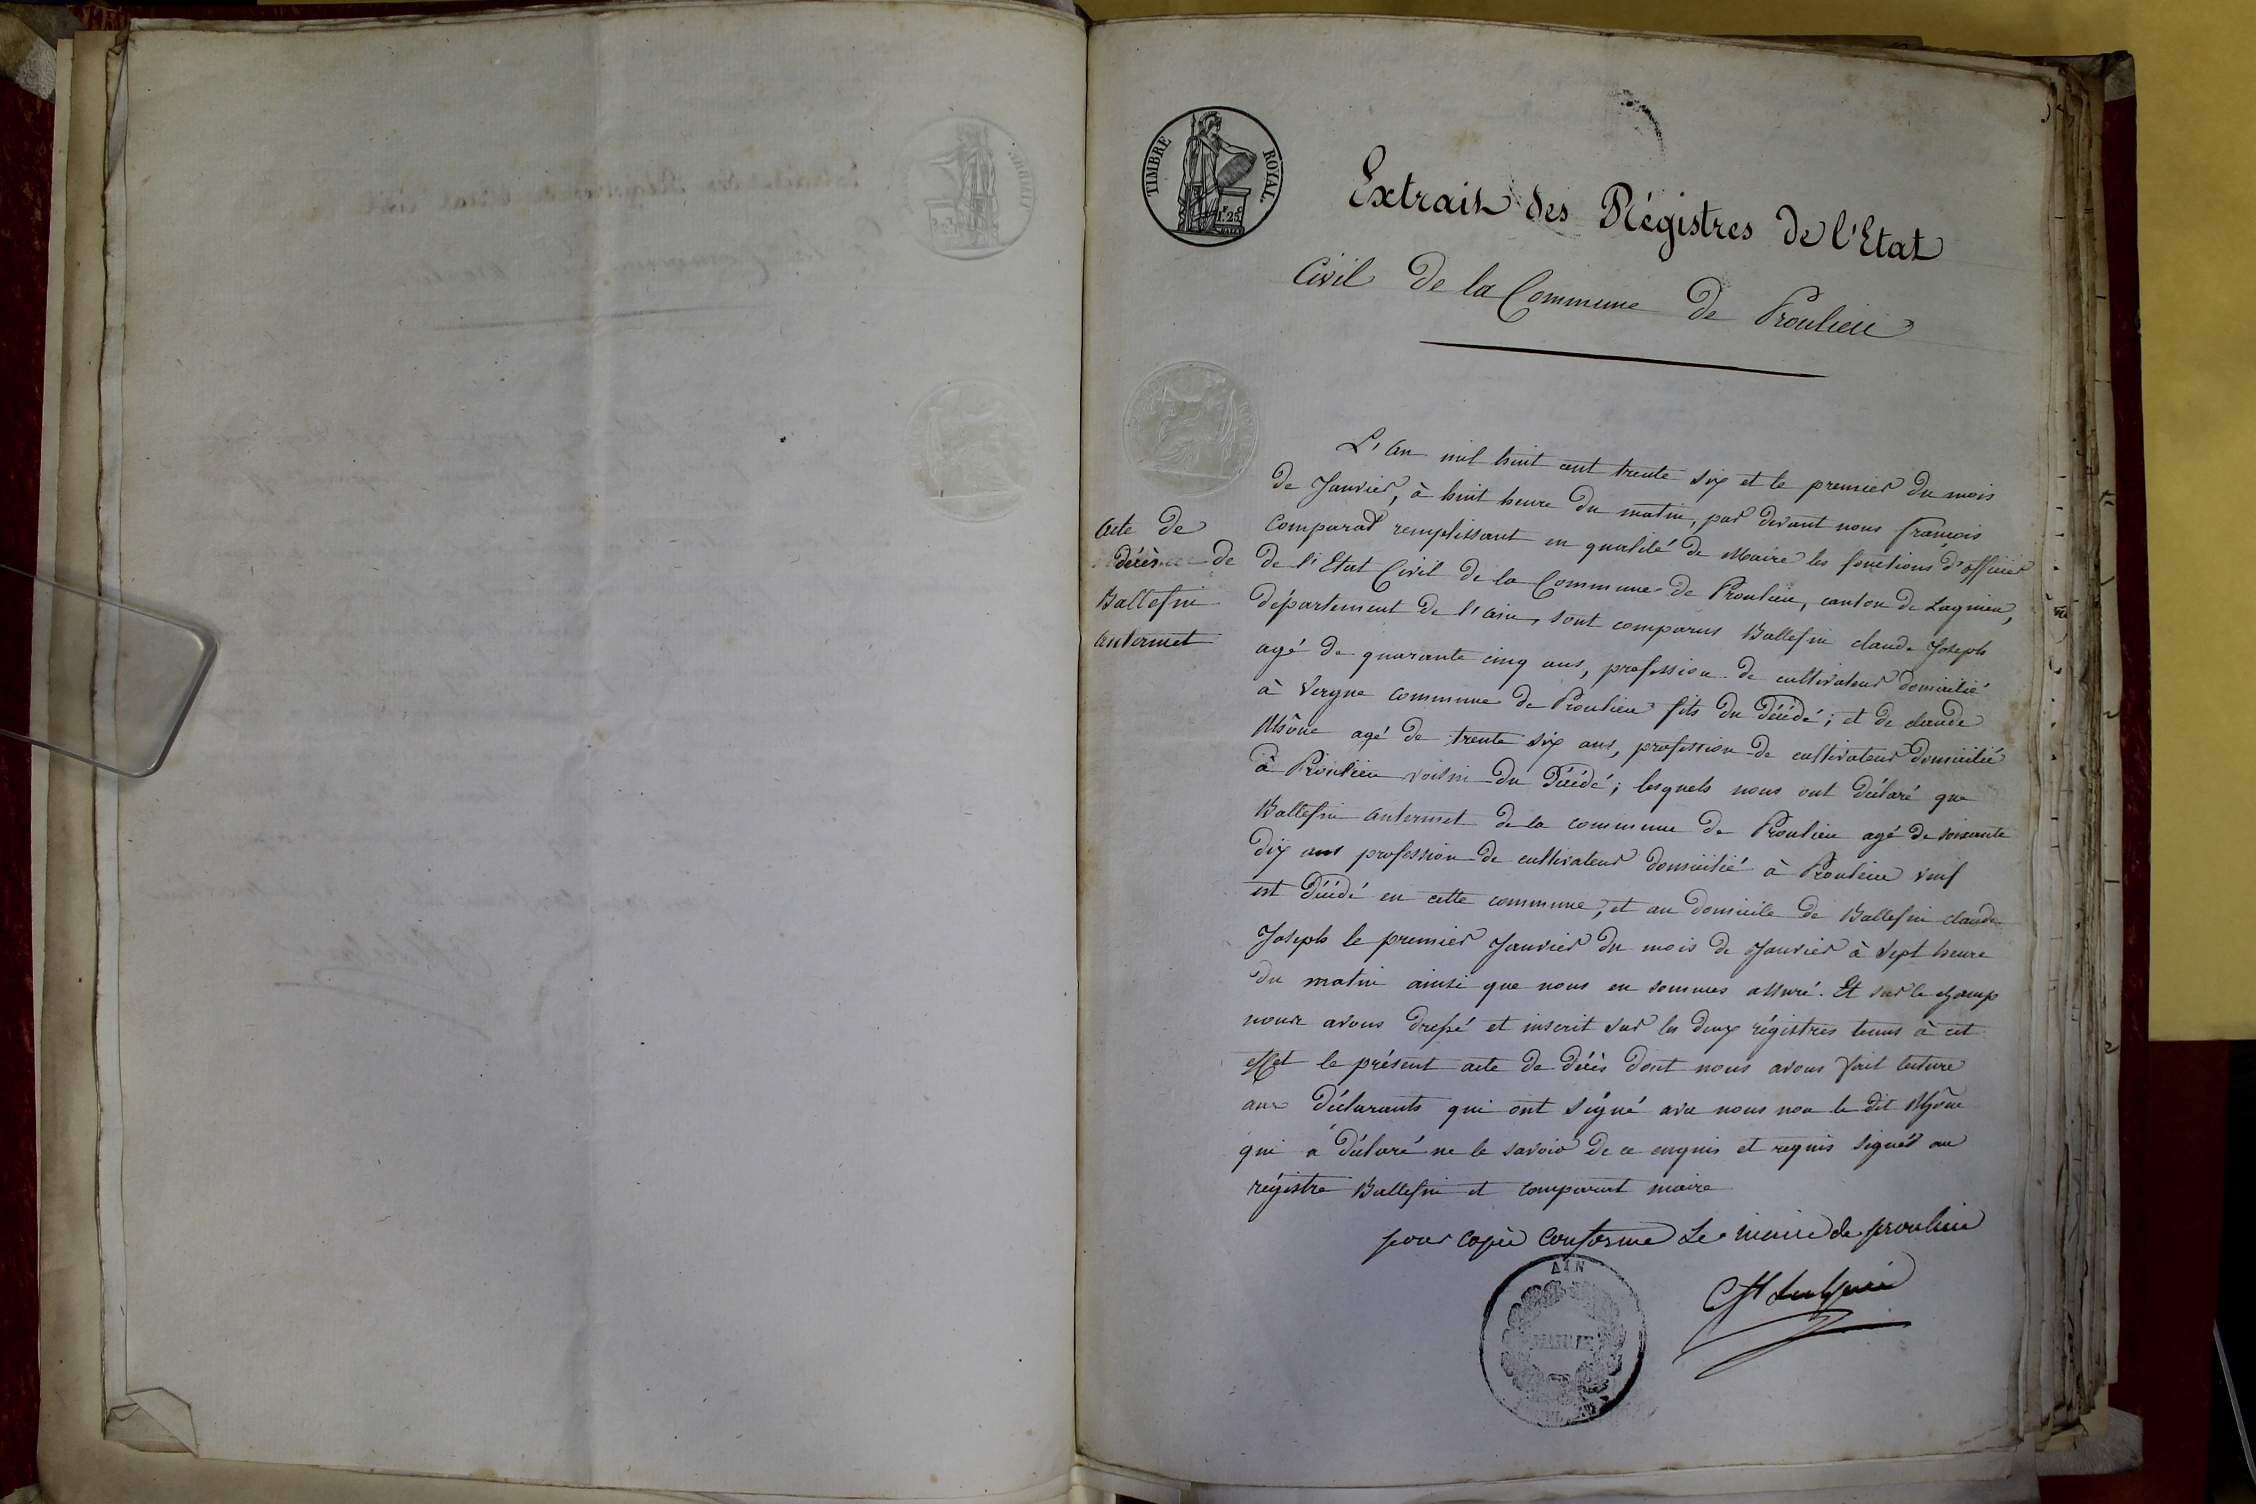 TIMBRE ROYAL.
1F. 25C
Extrait des Régistres de l'Etat
Civil de la Commune de Proulieu
acte de
décès de
Ballefin
antermet
L'an mil huit cent trente six et le premier du mois
de Janvier, à huit heure du matin, par devant nous françois
Comparat remplissant en qualité de Maire les fonctions d'officier
de l'Etat Civil de la Commune de Proulieu, canton de Lagnieu,
département de l'ain, sont comparus Ballefin claude Joseph
agé de quarante cinq ans, profession de cultivateur domicilié
à Vergne commune de Proulieu fils du Décédé; et de claude
Rhône agé de trente six ans, profession de cultivateur domicilié
à Proulieu voisin du Décédé; lesquels nous ont déclaré que
Ballefin antermet de la commune de Proulieu agé de soixante
dix ans profession de cultivateur domicilié à Proulieu veuf
est Décédé en cette commune, et au domicile de Ballefin claude
Joseph le premier Janvier du mois de Janvier à sept heure
du matin ainsi que nous en sommes assuré. Et sur le champ
nous avons dressé et inscrit sur les deux régistres tenus à cet
effet le présent acte de décès dont nous avons fait lecture
aux Déclarants qui ont signé avec nous non le dit Rhône
qui a déclaré ne le savoir de ce enquis et requis signés au
régistre Ballefin et Comparat maire
pour copie conforme Le maire de proulieu
AIN
MAIRIE